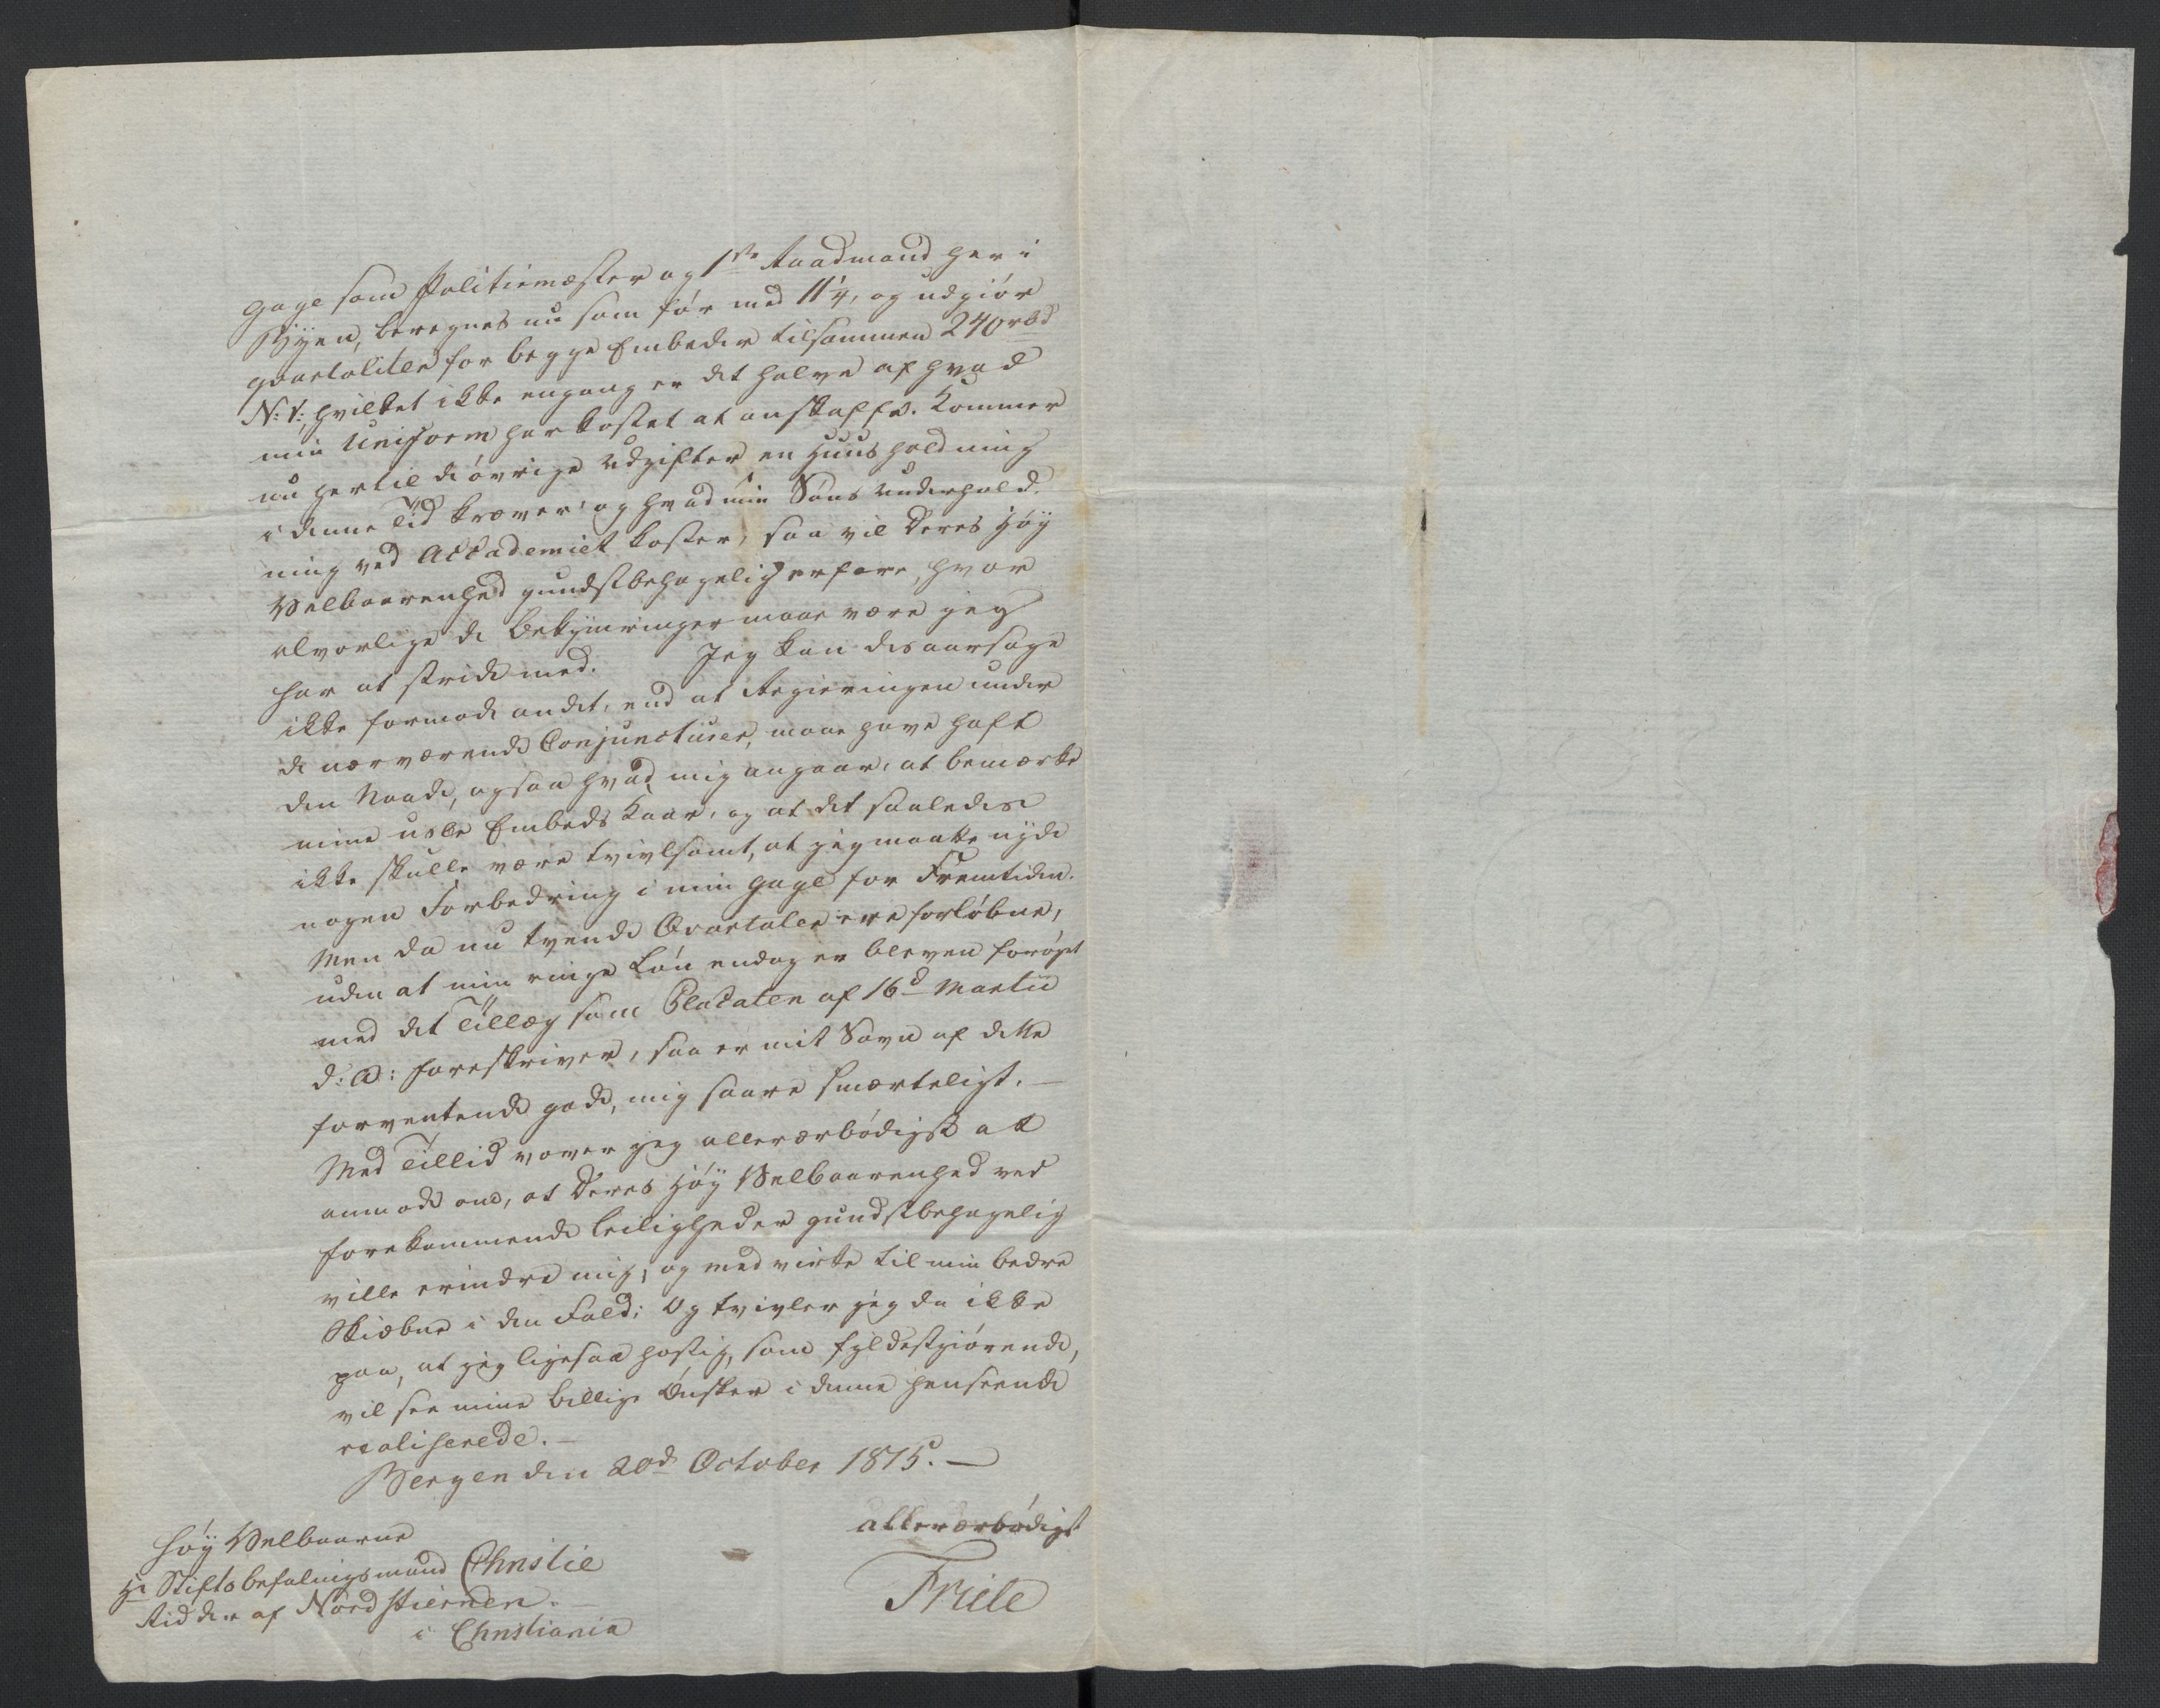 Gage som Politiemester og 1ste Raadmand her i
Byen, beregnes nu som før med 11¼, og udgiør
qvartaliter for begge Embeder tilsammen 240 rbd
N: V: hvilket ikke engang er det halve af hvad
min Uniform har kostet at anskaffe. Kommer
nu hertil de øvrige Udgifter en Huusholdning
i denne Tid kræver, og hvad min Søns Underhold-
ning ved Accademiet koster, saa vil Deres Høy
Velbaarenhed gundstbehagelig erfare, hvor
alvorlige de Bekymringer maae være jeg
har at stride med. Jeg kan desaarsage
ikke formode andet, end at Regieringen under
de nærværende Conjuncturer, maae have haft
den Naade, ogsaa hvad mig angaar, at bemærke
mine usle Embeds Kaar, og at det saaledes
ikke skulle være tvivlsomt, at jeg maatte nyde
nogen Forbedring i min Gage for Fremtiden.
Men da nu tvende Qvartaler ere forløbne,
uden at min ringe Løn endog er bleven forøget
med det Tillæg som Placaten af 16d Martii
d: A: foreskriver, saa er mit Savn af dette
forventende gode, mig saare smerteligt. —
Med Tillid vover jeg allerærbødigst at
anmode om, at Deres Høy Velbaarenhed ved
forekommende Leiligheder gundstbehagelig
ville erindre mig, og medvirke til min bedre
Skiæbne i den Fald; Og tvivler jeg da ikke
paa, at jeg ligesaa hastig, som fyldestgiørende,
vil see mine billige Ønsker i denne henseende
realiserede. —
Bergen den 20d October 1815. —
allerærbødigst
Friele
Høy Velbaarne
Hr Stiftsbefalingsmand Christie
Ridder af Nordstiernen. —
i Christiania